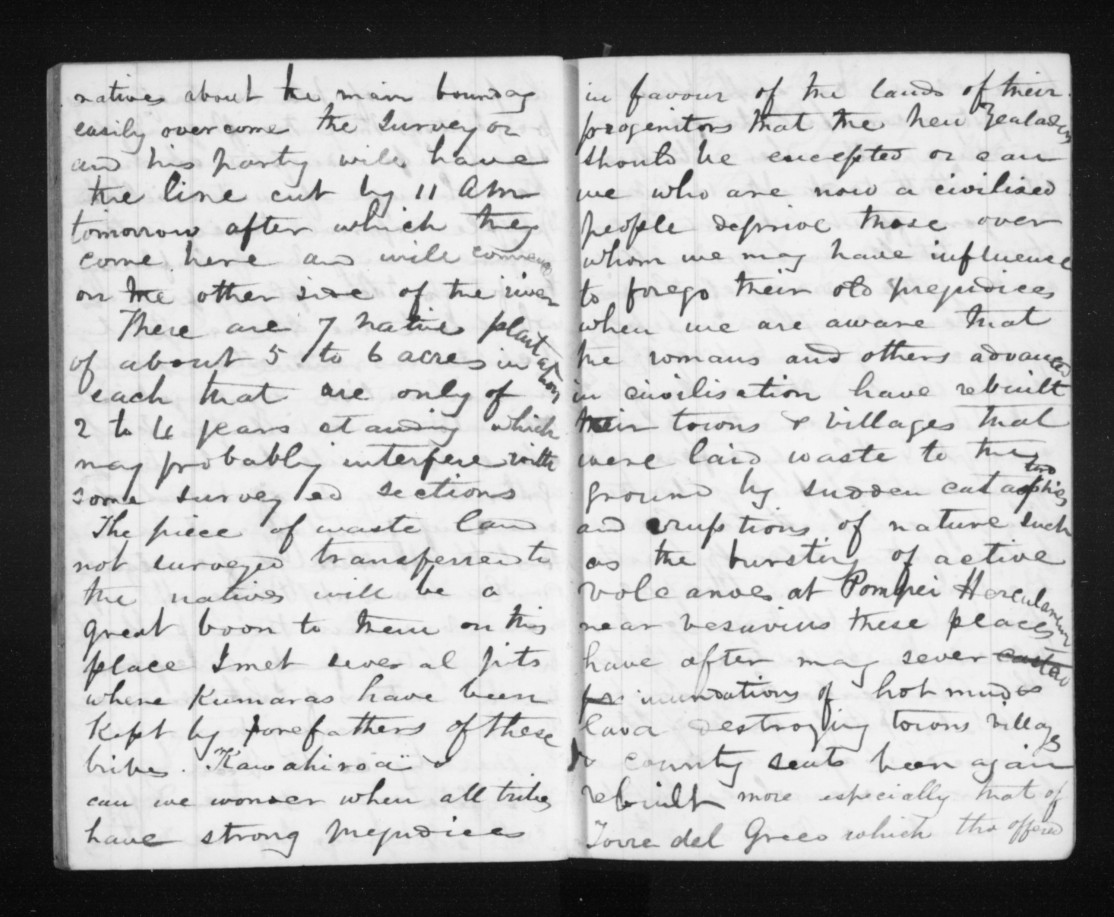 natives about the main bounday
easily overcome the surveyor
and his party will have
the line cut by 11 Am
tomorrow after which they
come here and will
on the other side of the river
There are 7 native plantations
of about 5 to 6 acres in
each that are only of
2 to 4 years standing which
may probably interfere with
some surveyed sections
The piece of waste land
not surveyed transferred to
the natives will be a
great boon to them on this
place I met several pits
where Kumaras have been
Kept by forefathers of these
tribes. "Kawahiroa" &
can we wonder when all tribes
have strong prejudices
in favour of the lands of their
progenitors that the new Zealanders
should be excepted or can
we who are now a civilised
people deprive those over
whom we may have influence
to forego their old prejudices
when we are aware that
the romans and others advanced
in civilisation have rebuilt
their towns & villages that
were laid waste to the
ground by sudden catastrophies
and eruptions of nature such
as the bursting of active
volcanoes at Pompei Herculaneum
near vesuvius these places
have after may sever
inundations of hot mud &
lava destroying towns villages
& county seats been again
rebuilt more especially that of
Torre del Greco which tho offered